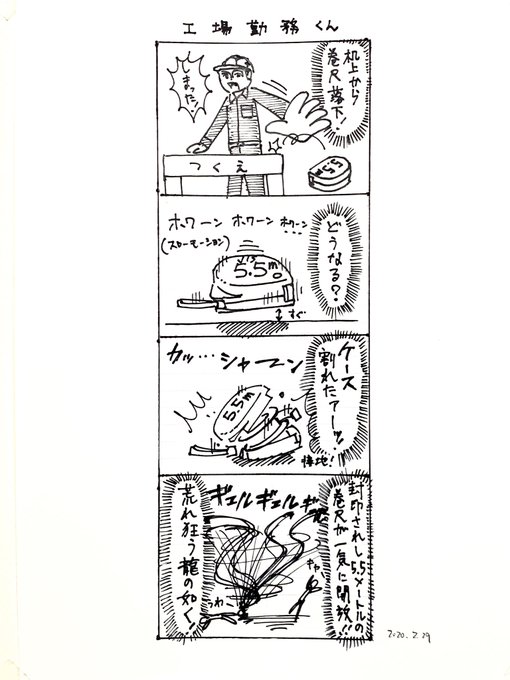 工場勤務くん
机上から
巻尺落下!
しまった!
つくえ
5.5
どうなる?
ホワーン ホワーン ホワーン
(スローモーション)
JIS
5.5m
すぐ
ケース
割れたァーッ!
カッ… シャァーン
5.5m
接地!
封印されし5.5メートルの
巻尺が一気に開放!!
ギュルギュルギュ
うわ
荒れ狂う龍の如く!
2020.2.29